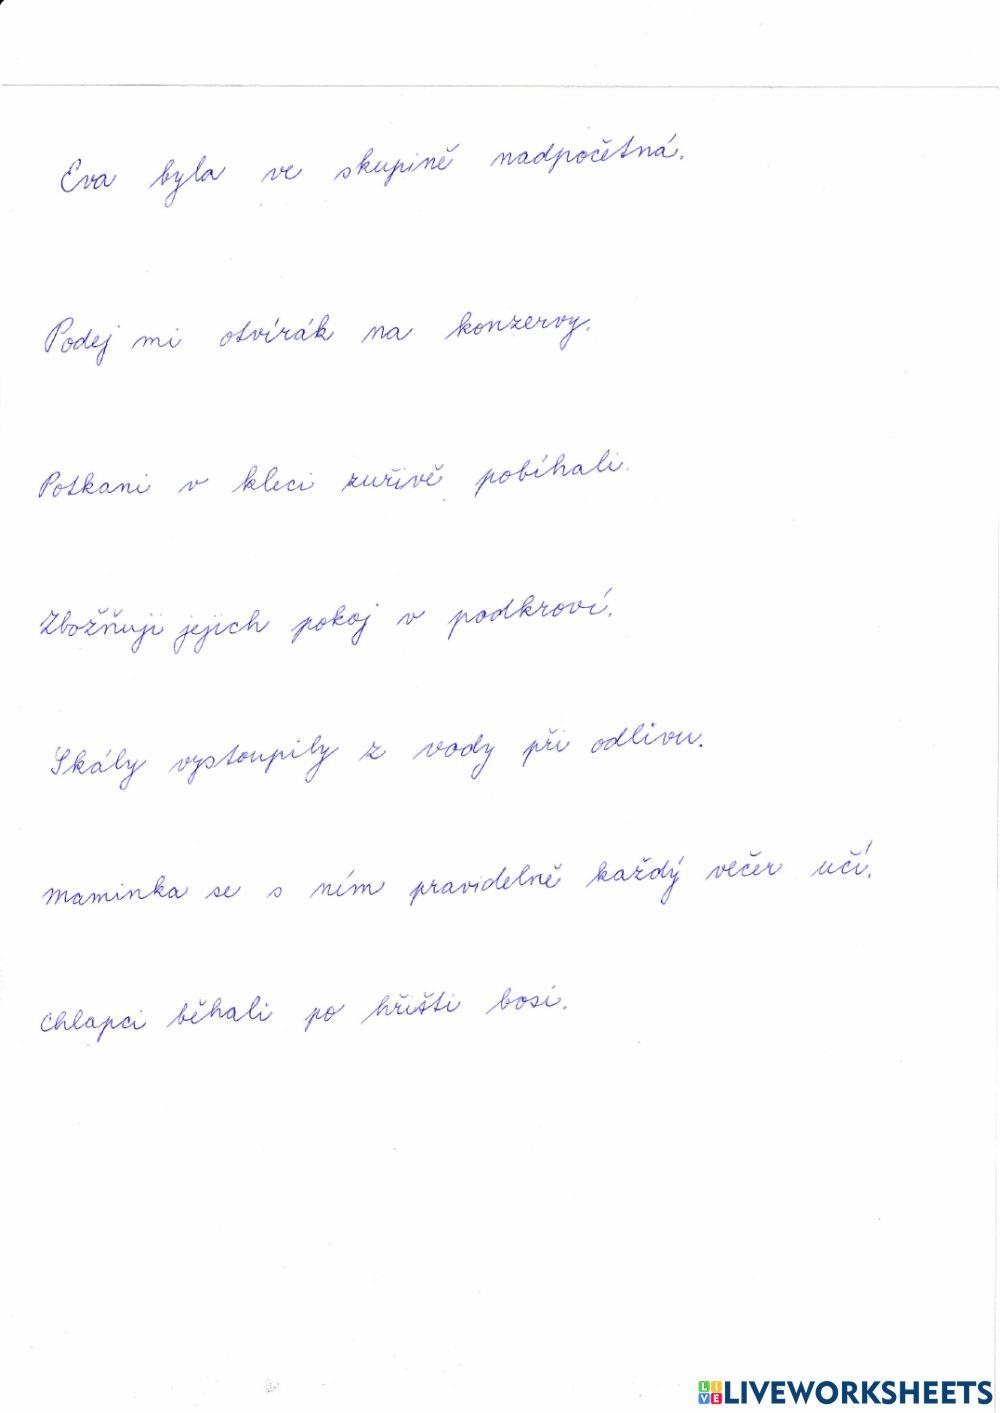 Eva byla ve skupině nadpočetná.
Podej mi otvírák na konzervy.
Potkani v kleci zuřivě pobíhali.
Zbožňuji jejich pokoj v podkroví.
Skály vystoupily z vody při odlivu.
Maminka se s ním pravidelně každý večer učí.
Chlapci běhali po hřišti bosí.
LIVEWORKSHEETS